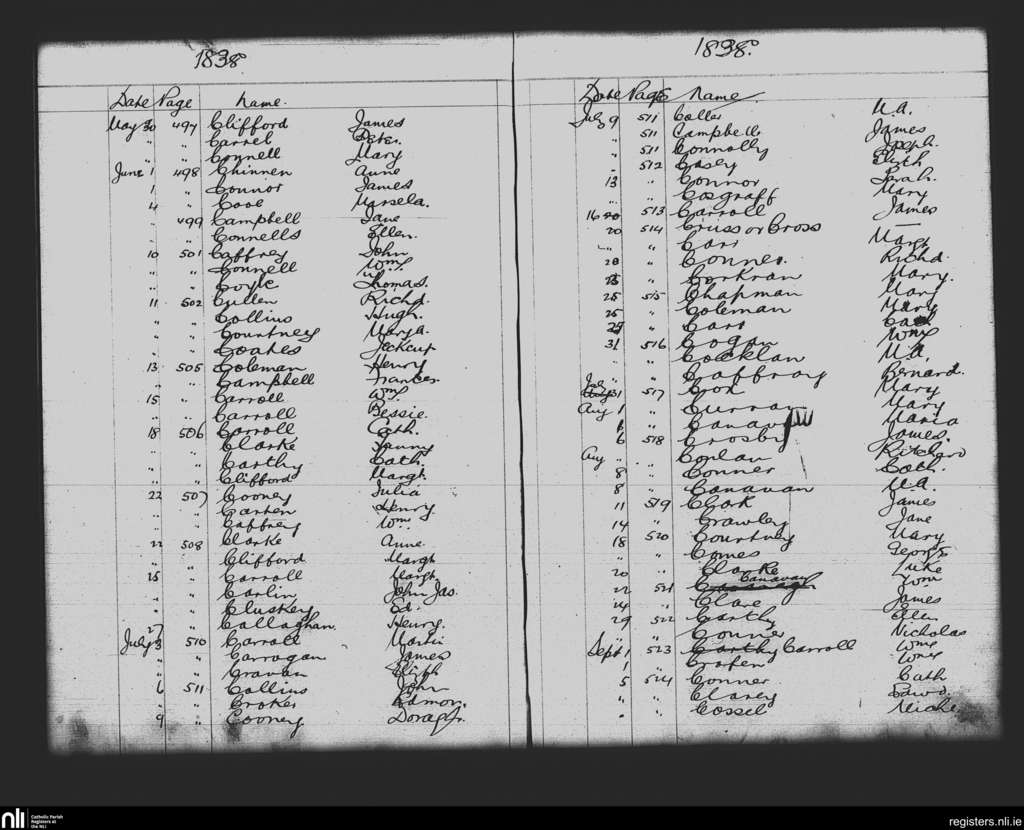 1838
Date Page Name
May 30 497 Clifford James
" " Carrel Peter.
" " Connell Mary
June 1 498 Chinnen Anne
1 " Connor James
4 " Cooe Marsela.
" 499 Campbell Jane
" " Connells Ellen.
10 501 Caffrey John
" " Connell Wm.
" " Coyle Thomas.
11 502 Cullen Richd.
" " Collins Hugh.
" " Courtney Mary A.
" " Coates
13 505 Coleman Henry
" " Campbell Frances
15 " Carroll Wm.
" " Carroll Bessie.
18 506 Carroll Cath.
" " Clarke Fanny
" " Carthy Cath.
" " Clifford Margt.
22 507 Cooney Julia
" " Carten Henry
" " Caffrey Wm.
22 508 Clarke Anne.
" " Clifford Margt.
25 " Carroll Margt.
" " Carlin John Jas.
" " Cluskey Ed.
27 " Callaghan. Henry.
July 3 510 Carroll Martin
" " Carragan James
" " Cravan Elizth
6 511 Collins John
" " Croker Edmon.
9 " Cooney
1838.
Date Page Name
July 9 511 Coller M.A.
" 511 Campbell James
" 511 Connolly Joseph.
" 512 Casey Elizth
13 " Connor Sarah.
" " Cosgraff Mary
16 513 Carroll James
20 514 Criss or Cross —
" " Carr Mary
20 " Conner. Richd.
" Corkran Mary.
25 515 Chapman Mary
25 " Coleman Mary
" Carr
31 516 Cogan Wm
" " Cocklan M.A.
" " Caffray Bernard.
July 31 517 Cox Mary
Aug 1 " Curran Mary
" Canavan Maria
6 518 Crosby James.
Aug " " Conlan Richard
8 " Conner Cath.
8 " Canavan M.A.
11 519 Clark James
14 " Crawley Jane
18 520 Courtney Mary
" " Comes George
20 " Clarke Luke
22 521 Canavan Wm
24 " Clare James
29 522 Carthy Ellen
" " Conner Nicholas
Sept 1 523 Carthy Carroll Wm
1 " Crofen Wm
5 524 Conner Cath
" " Clarey Edwd.
" " Cossel
nli
Catholic Parish
Registers at
the NLI
registers.nli.ie